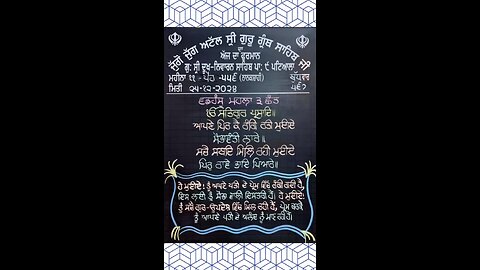 ਜੁੱਗੋ ਜੁੱਗ ਅਟੱਲ ਸ੍ਰੀ ਗੁਰੂ ਗ੍ਰੰਥ ਸਾਹਿਬ ਜੀ
ਦਾ
ਅੱਜ ਦਾ ਫੁਰਮਾਨ
ਗੁ: ਸ੍ਰੀ ਦੂਖ-ਨਿਵਾਰਨ ਸਾਹਿਬ ਪਾ: ੯ ਪਟਿਆਲਾ
ਮਹੀਨਾ ੧੧ - ਪੋਹ -੫੫੬ (ਨਾਨਕਸ਼ਾਹੀ)
ਬੁੱਧਵਾਰ
ਮਿਤੀ ੨੫-੧੨-੨੦੨੪
੫੬੭
ਵਡਹੰਸ ਮਹਲਾ ੩ ਛੰਤ
ੴ ਸਤਿਗੁਰ ਪ੍ਰਸਾਦਿ॥
ਆਪਣੇ ਪਿਰ ਕੈ ਰੰਗਿ ਰਤੀ ਮੁਈਏ
ਸੋਭਾਵੰਤੀ ਨਾਰੇ॥
ਸਚੈ ਸਬਦਿ ਮਿਲਿ ਰਹੀ ਮੁਈਏ
ਪਿਰੁ ਰਾਵੇ ਭਾਇ ਪਿਆਰੇ॥
ਹੇ ਮੁਈਏ! ਤੂੰ ਆਪਣੇ ਪਤੀ ਦੇ ਪ੍ਰੇਮ ਵਿੱਚ ਰੰਗੀ ਗਈ ਹੈਂ,
ਇਸ ਲਈ ਤੂੰ ਸੋਭਾ ਵਾਲੀ ਇਸਤਰੀ ਹੈਂ। ਹੇ ਮੁਈਏ!
ਤੂੰ ਸਚੇ ਗੁਰ-ਉਪਦੇਸ਼ ਵਿੱਚ ਮਿਲ ਰਹੀ ਹੈਂ, ਪ੍ਰੇਮ ਕਰਕੇ
ਤੂੰ ਆਪਣੇ ਪਤੀ ਦੇ ਅਨੰਦ ਨੂੰ ਮਾਣ ਰਹੀ ਹੈਂ।